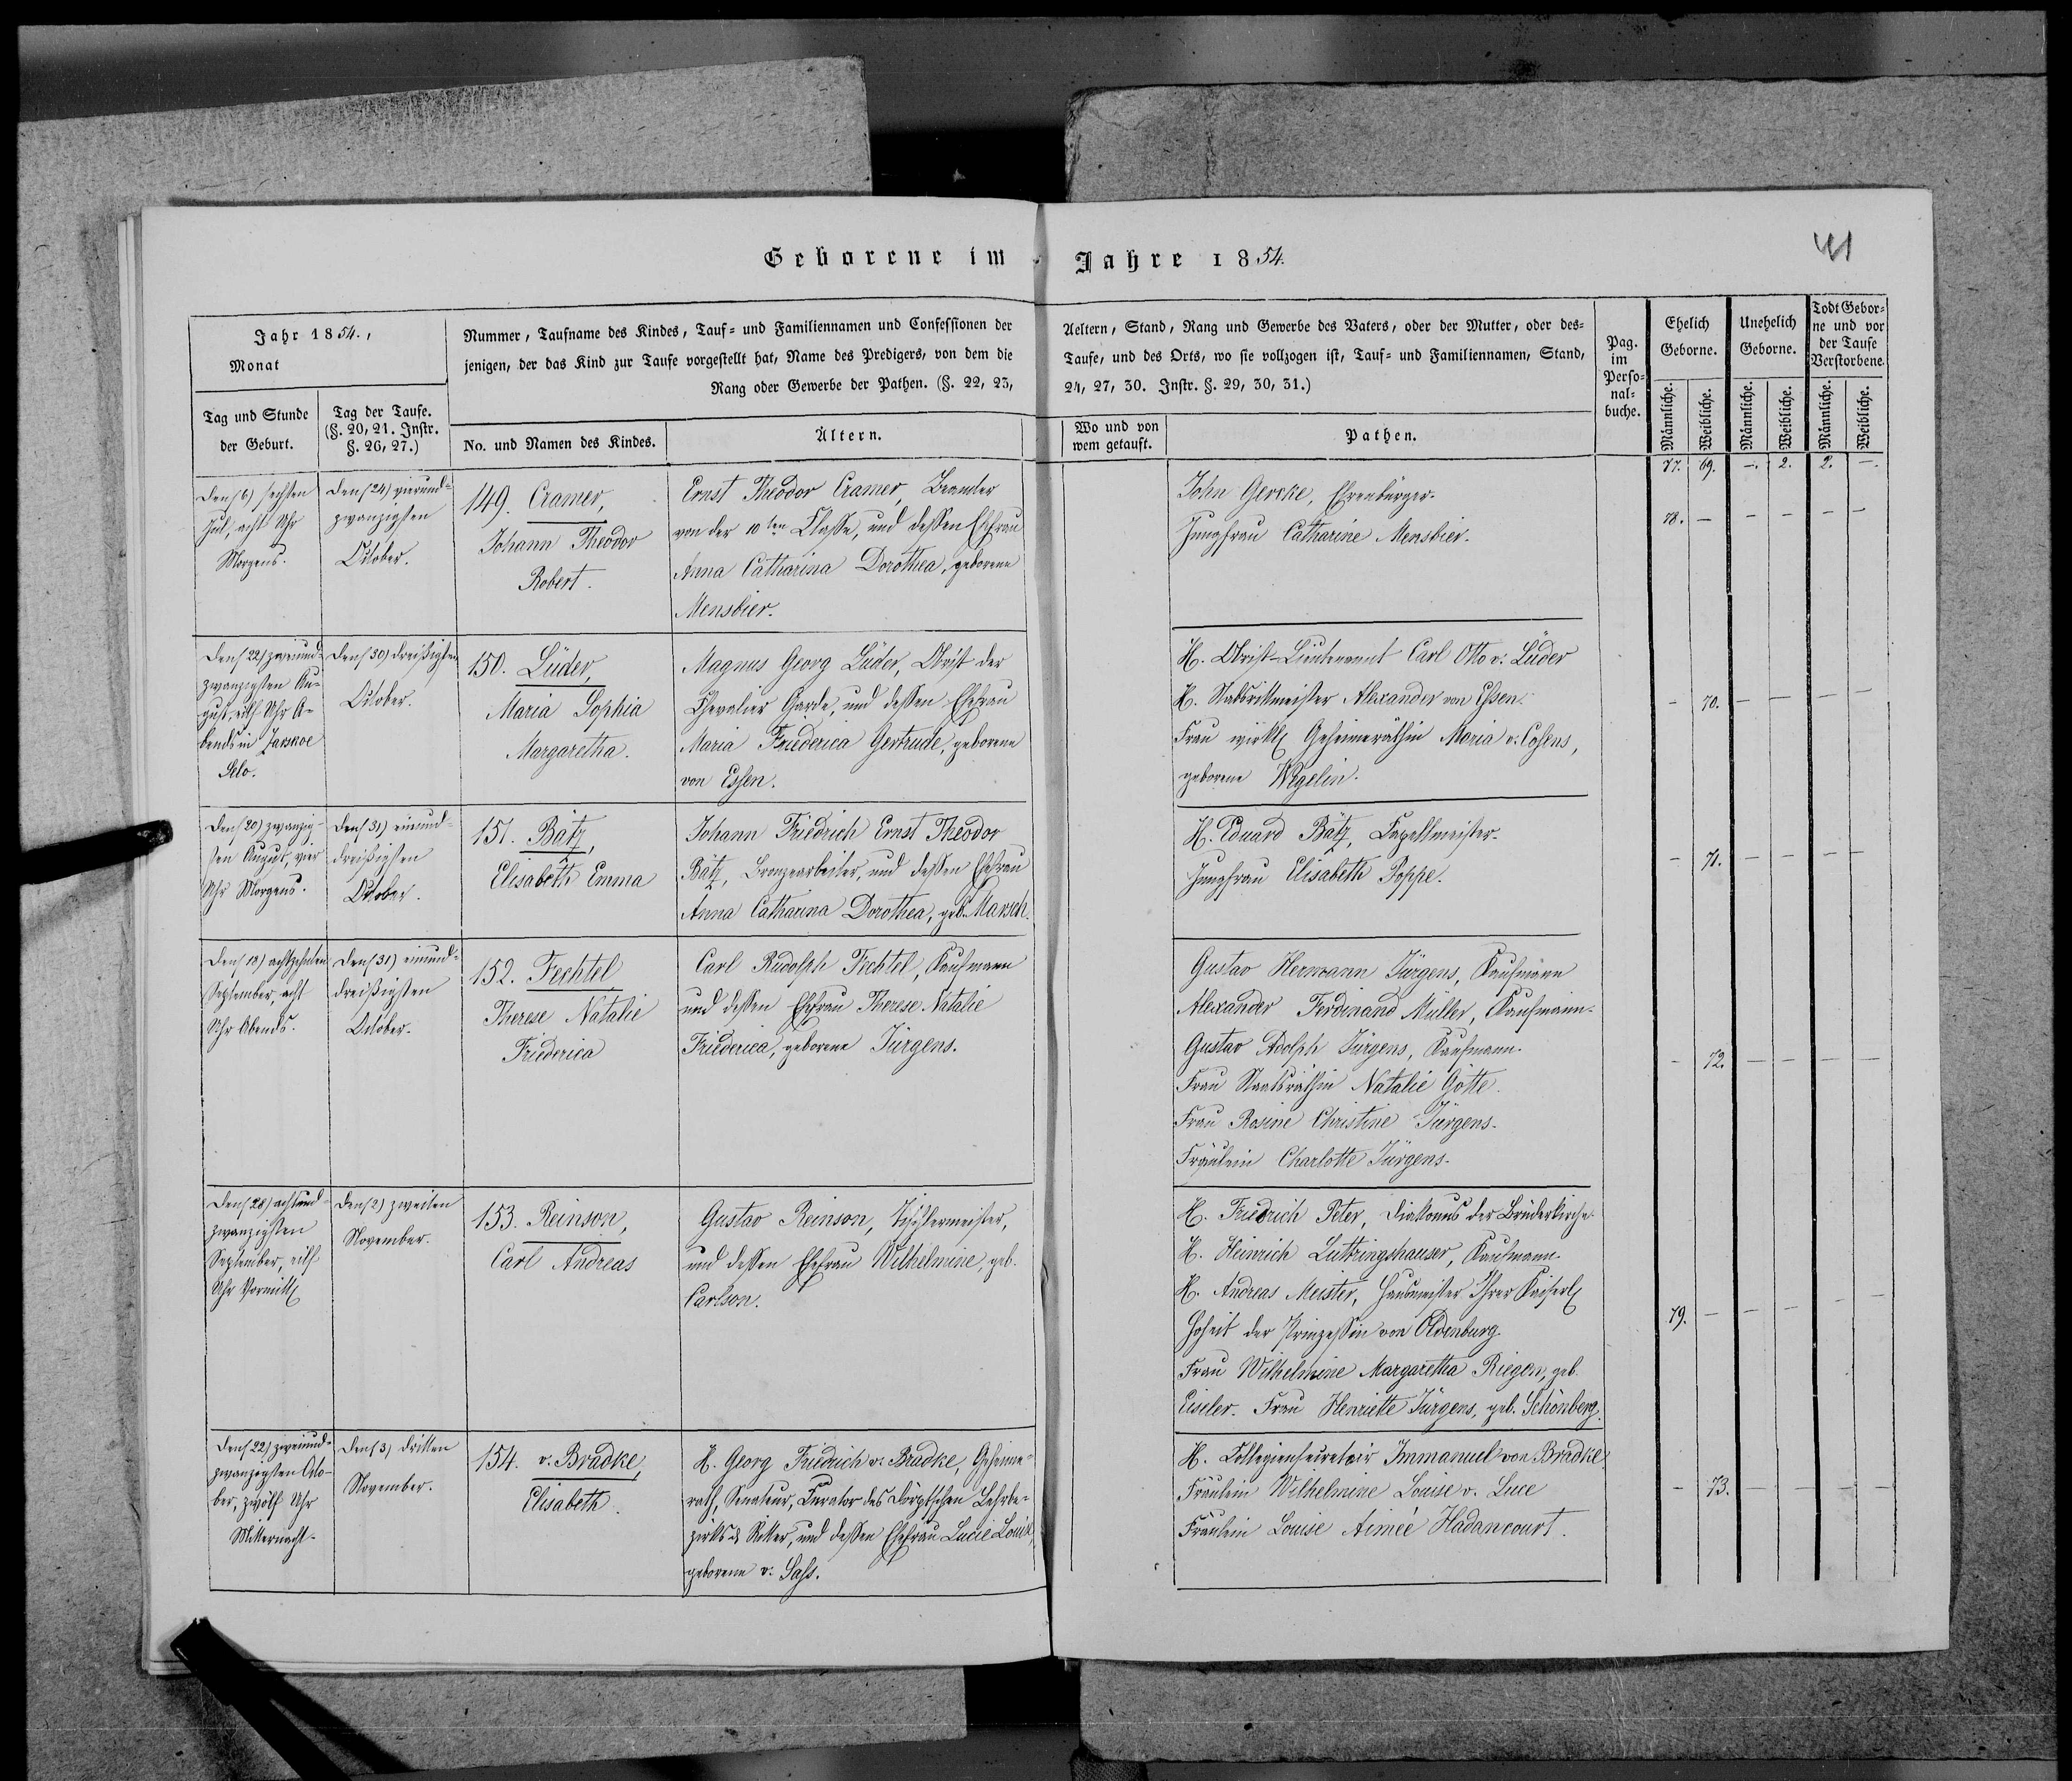 Geborene im Jahre 1854.
41
Jahr 1854.,
Monat
Tag und Stunde
der Geburt.
Tag der Taufe.
(§. 20, 21. Instr.
§. 26, 27.)
Nummer, Taufname des Kindes, Tauf- und Familiennamen und Confessionen der
jenigen, der das Kind zur Taufe vorgestellt hat, Name des Predigers, von dem die
Rang oder Gewerbe der Pathen. (§. 22, 23,
No. und Namen des Kindes.
Ältern.
Aeltern, Stand, Rang und Gewerbe des Vaters, oder der Mutter, oder des-
Taufe, und des Orts, wo sie vollzogen ist, Tauf- und Familiennamen, Stand,
24, 27, 30. Instr. §. 29, 30, 31.)
Wo und von
wem getauft.
Pathen.
Pag.
im
Perso-
nal-
buche.
Ehelich
Geborne.
Unehelich
Geborne.
Todt Gebor-
ne und vor
der Taufe
Verstorbene.
Männliche.
Weibliche.
Männliche.
Weibliche.
Männliche.
Weibliche.
77. 69. -. 2. 2. -.
Den (6) sechsten
Jul, acht Uhr
Morgens.
Den (24) vierund-
zwanzigsten
October.
149. Cramer,
Johann Theodor
Robert.
Ernst Theodor Cramer, Beamter
von der 10ten Classe, und dessen Ehefrau
Anna Catharina Dorothea, geborene
Mensbier.
John Gercke, Ehrenbürger.
Jungfrau Catharine Mensbier.
78. - - - - -
Den (22) zweiund-
zwanzigsten Au-
gust, eilf Uhr A-
bends in Zarskoe
Selo.
Den (30) dreißigsten
October.
150. Lüder,
Maria Sophia
Margaretha.
Magnus Georg Lüder, Obrist der
Chevalier Garde, und dessen Ehefrau
Maria Friederica Gertrude, geborene
von Essen.
H. Obrist-Lieutenant Carl Otto v. Lüder
H. Stabsrittmeister Alexander von Essen.
Frau wirkl. Geheimeräthin Maria v. Cosens,
geborene Wegelin.
- 70. - - - -
Den (20) zwanzig-
sten August, vier
Uhr Morgens.
Den (31) einund-
dreißigsten
October.
151. Bätz,
Elisabeth Emma
Johann Friedrich Ernst Theodor
Bätz, Bronzearbeiter, und dessen Ehefrau
Anna Catharina Dorothea, geb. Marsch.
H. Eduard Bätz, Capellmeister.
Jungfrau Elisabeth Poppe.
- 71. - - - -
Den (18) achtzehnten
September, acht
Uhr Abends.
Den (31) einund-
dreißigsten
October.
152. Fechtel,
Therese Natalie
Friederica
Carl Rudolph Fechtel, Kaufmann
und dessen Ehefrau Therese Natalie
Friederica, geborene Jürgens.
Gustav Hermann Jürgens, Kaufmann
Alexander Ferdinand Müller, Kaufmann.
Gustav Adolph Jürgens, Kaufmann.
Frau Staatsräthin Natalie Götte.
Frau Rosine Christine Jürgens.
Fräulein Charlotte Jürgens.
- 72. - - - -
Den (28) achtund-
zwanzigsten
September, eilf
Uhr Vormitt.
Den (2) zweiten
November.
153. Reinson,
Carl Andreas
Gustav Reinson, Tischlermeister,
und dessen Ehefrau Wilhelmine, geb.
Carlson.
H. Friedrich Peter, Diakonus der Brüderkirche.
H. Heinrich Luttringshauser, Kaufmann.
H. Andreas Meister, Hausmeister Ihrer Kaiserl.
Hoheit der Prinzessin von Oldenburg.
Frau Wilhelmine Margaretha Riegen, geb.
Eiseler. Frau Henriette Jürgens, geb. Schönberg.
79. - - - - -
Den (22) zweiund-
zwanzigsten Octo-
ber, zwölf Uhr
Mitternacht.
Den (3) dritten
November.
154. v. Bradke,
Elisabeth.
H. Georg Friedrich v. Bradke, Geheime-
rath, Senateur, Curator des Dörptschen Lehrbe-
zirks & Ritter, und dessen Ehefrau Lucie Louise,
geborene v. Sass.
H. Collegiensecretair Immanuel von Bradke
Fräulein Wilhelmine Louise v. Luce
Fräulein Louise Aimée Hadancourt.
- 73. - - - -